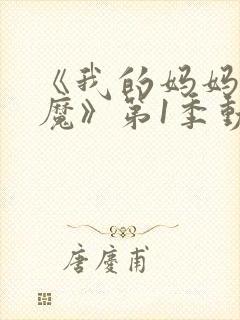 《我的妈妈
魔》第1季動
唐慶甫